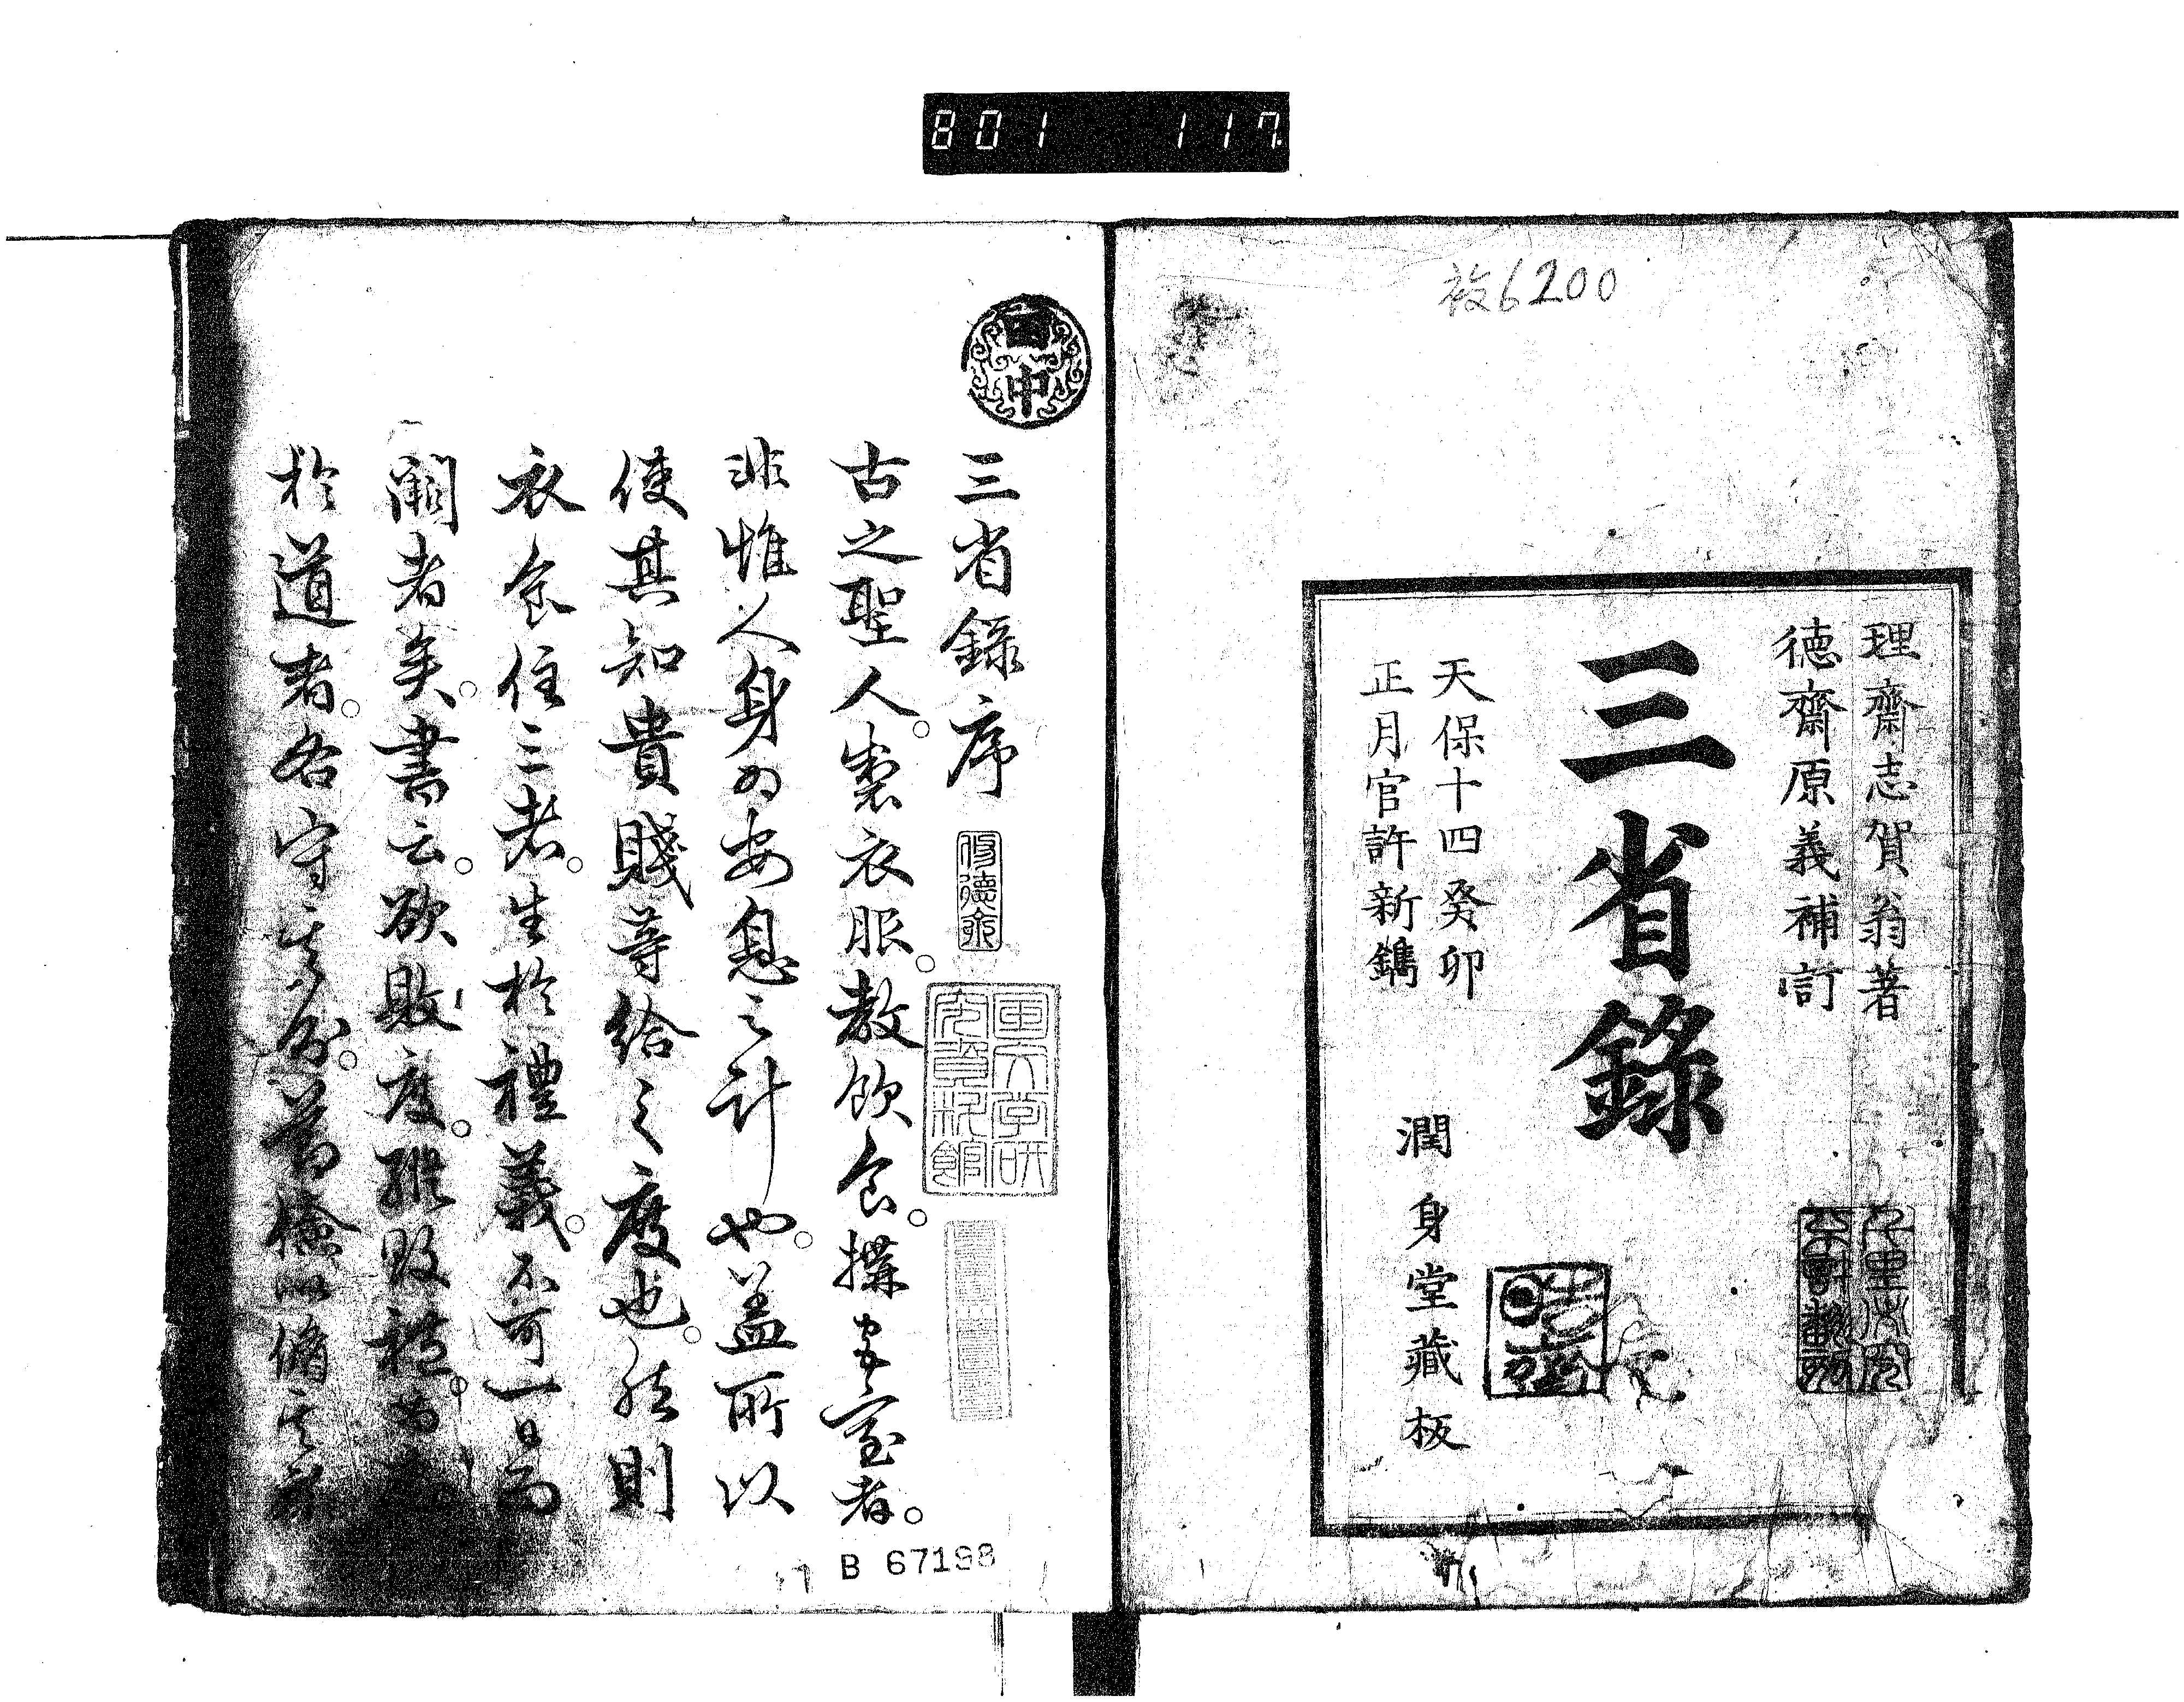 801 117
複6200
理齋志賀翁著
德齋原義補訂
三省錄
天保十四癸卯
正月官許新鐫
潤身堂藏板
中
三省錄序
古之聖人。製衣服。教飲食。搆家室者。
非惟人身為安息之計也。蓋所以
使其知貴賤等給之度也。然則
衣食住三者。生於禮義。不可一日而
闕者矣。書云。欲敗度。縱敗禮。
於道者。各守其分。
B 67198